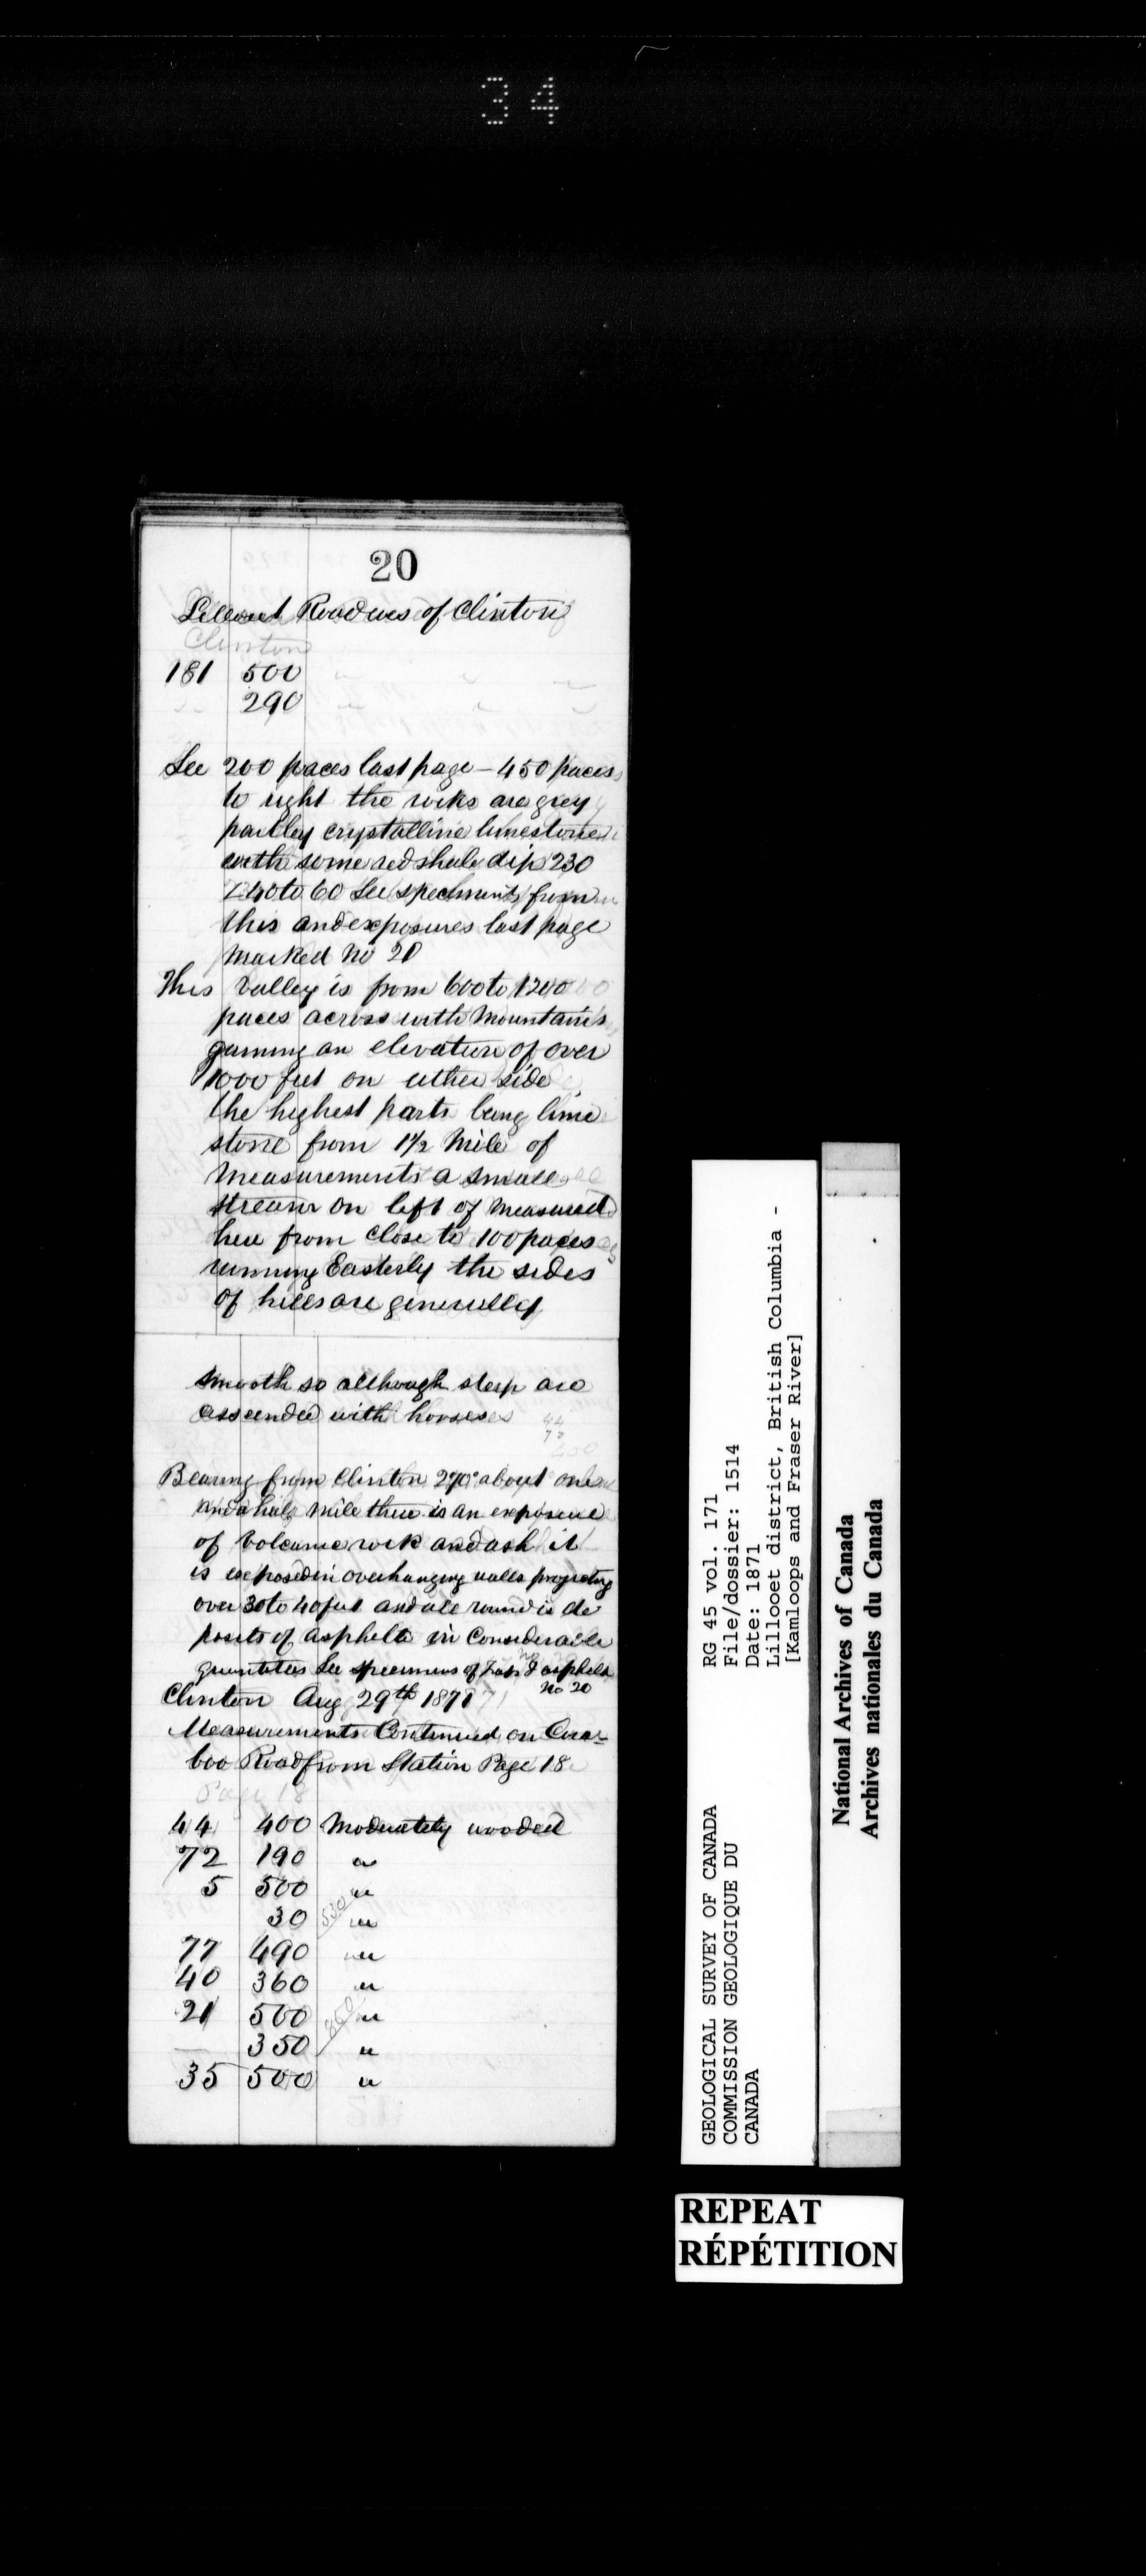 34
20
Lillooet Road wes of Clinton
Clinton
181 500
290
See 200 paces last page – 450 paces
to right the rocks are grey
partley crystalline limestone
with some red shale dip 230
∠ 40 to 60 See speciments from
this and exposures last page
marked No 20
This Valley is from 600 to 1200
paces across with Mountains
gaining an elevation of over
1000 feet on either side
the highest parts being lime
stone from 1½ Mile of
Measurements a small
stream on left of Measured
here from Close to 100 paces
running Easterly the sides
of hills are generally
smooth so although steep are
asscended with horses
Bearing from Clinton 270° about one
and a half mile there is an exposure
of Volcanic rock and ash it
is exposed in overhanging walls projecting
over 30 to 40 feet and all round is de
posits of asphelta in Considerable
quantetees See specimens of & asphelta
No 20
Clinton Aug 29th 1871
Measurements Continued on Cara-
boo Road from Station Page 18
Page 18
44 400 Moderately wooded
72 190 "
5 500 "
30 530 "
77 490 "
40 360 "
21 500 "
350 850 "
35 500 "
RG 45 vol. 171
File/dossier: 1514
Date: 1871
Lillooet district, British Columbia -
[Kamloops and Fraser River]
GEOLOGICAL SURVEY OF CANADA
COMMISSION GEOLOGIQUE DU
CANADA
National Archives of Canada
Archives nationales du Canada
REPEAT
RÉPÉTITION